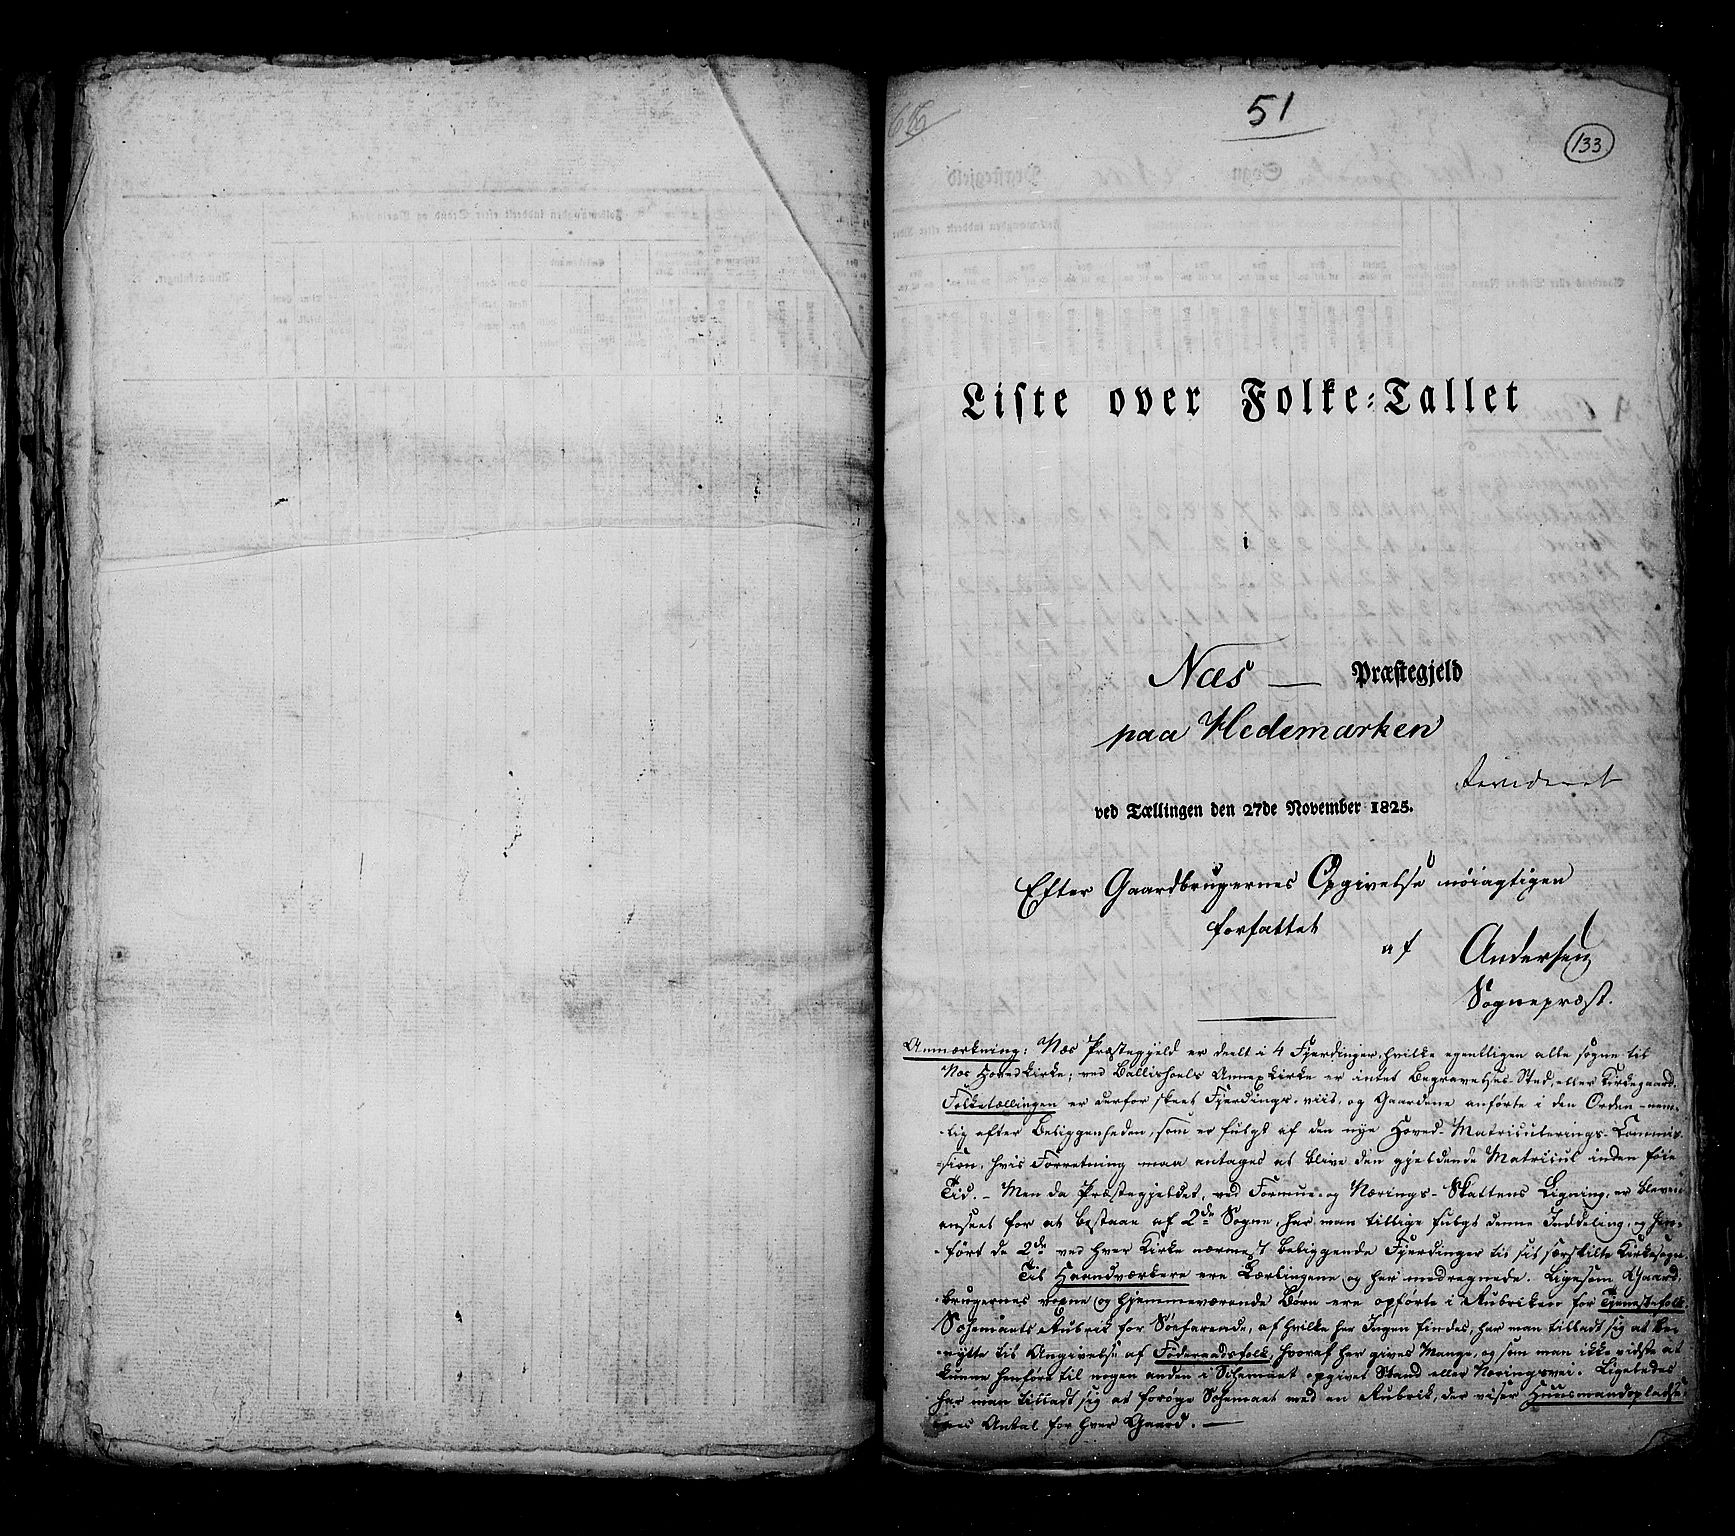 51
133
Liste over Folke-Tallet
i
Næs — Præstegjeld
paa Hedemarken
Revideret
ved Tællingen den 27de November 1825.
Efter Gaardbrugernes Opgivelse nøiagtigen
forfattet
af Andersen
Sognepræst.
Anmærkning: Næs Præstegjeld er deelt i 4 Fjerdinger, hvilke egentligen alle søgne til
Næs Hovedkirke; ved Ballishoels Annexkirke er intet Begravelses-Sted, eller Kirkegaard.
Folketællingen er derfor skeet Fjerdings-viis, og Gaardene anførte i den Orden nem-
-lig efter Beliggenheden, som er fulgt af den nye Hoved-Matriculerings-Commis-
-sion, hvis Forretning maa antages at blive den gjeldende Matricul inden føie
Tid. - Men da Præstegjeldet, ved Formue- og Nærings-Skattens Ligning, er bleven
anseet for at bestaae af 2de Sogne, har man tillige fulgt denne Inddeling, og hen-
-ført de 2de ved hver Kirke nærmest beliggende Fjerdinger til sit særskilte Kirkesogn.
Til Haandværkere ere Lærlingene og her medregnede. Ligesom Gaard-
brugernes voxne og hjemmeværende Børn ere opførte i Rubriken for Tjenestefolk.
Schemaets Rubrik for Søefarende, af hvilke her Ingen findes, har man tilladt sig at be-
-nytte til Angivelse af Föderaadsfolk, hvoraf her gives Mange, og som man ikke vidste at
kunne henføre til nogen anden i Schemaet opgivet Stand eller Næringsvei. Ligeledes
har man tilladt sig at forøge Schemaet med en Rubrik, der viser Huusmandspladse-
nes Antal for hver Gaard. —